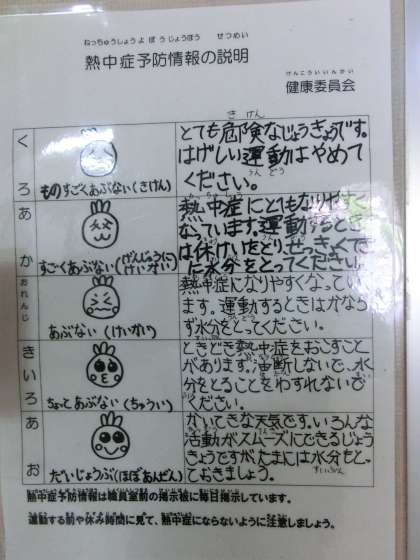 ねっちゅうしょうよぼうじょうほう せつめい
熱中症予防情報の説明
けんこういいんかい
健康委員会
くろ
ものすごくあぶない(きけん)
きけん
とても危険なじょうきょうです。
はげしい運動はやめて
うんどう
ください。
あか
すごくあぶない(げんじゅうにけいかい)
熱中症にとてもなりやすく
なっています。運動するとき
は休けいをとり、せっきょくてき
に水分をとってください。
おれんじ
あぶない(けいかい)
熱中症になりやすくなってい
ます。運動するときはかなら
ず水分をとってください。
きいろ
ちょっとあぶない(ちゅうい)
ときどき熱中症をおこすこと
があります。油断しないで、水
分をとることをわすれないで
ください。
あお
だいじょうぶ(ほぼあんぜん)
かいてきな天気です。いろんな
活動がスムーズにできるじょう
きょうですが、たまには水分をとっ
ておきましょう。
すいぶん
熱中症予防情報は職員室前の掲示板に毎日掲示しています。
運動する前や休み時間に見て、熱中症にならないように注意しましょう。